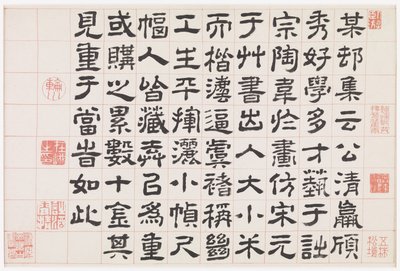 某邨集云公清羸頎
秀好學多才藝于詩
宗陶韋於畫仿宋元
于艸書出入大小米
而楷灋逼虞褚稱幽
工生平揮灑小幀尺
幅人皆藏弆㠯為重
或購之累數十金其
見重于當旹如此